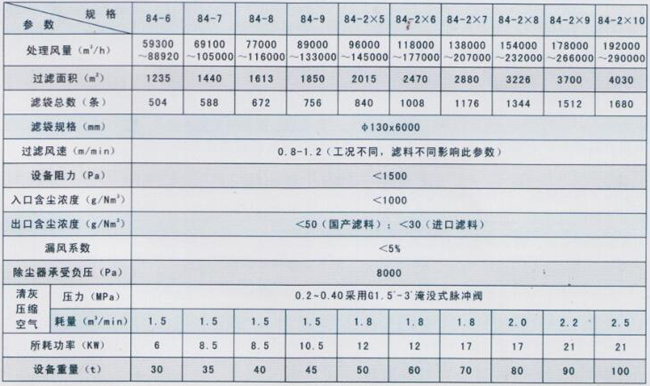 规格
参数 84-6 84-7 84-8 84-9 84-2×5 84-2×6 84-2×7 84-2×8 84-2×9 84-2×10
处理风量(m³/h) 59300~88920 69100~105000 77000~116000 89000~133000 96000~145000 118000~177000 138000~207000 154000~232000 178000~266000 192000~290000
过滤面积(m²) 1235 1440 1613 1850 2015 2470 2880 3226 3700 4030
滤袋总数(条) 504 588 672 756 840 1008 1176 1344 1512 1680
滤袋规格(mm) φ130x6000
过滤风速(m/min) 0.8-1.2(工况不同,滤料不同影响此参数)
设备阻力(Pa) <1500
入口含尘浓度(g/Nm³) <1000
出口含尘浓度(g/Nm³) <50(国产滤料);<30(进口滤料)
漏风系数 <5%
除尘器承受负压(Pa) 8000
清灰压缩空气 压力(MPa) 0.2~0.40采用G1.5″-3″淹没式脉冲阀
耗量(m³/min) 1.5 1.5 1.5 1.5 1.8 1.8 1.8 2.0 2.2 2.5
所耗功率(KW) 6 8.5 8.5 10.5 12 12 17 17 21 21
设备重量(t) 30 35 40 45 50 60 70 80 90 100